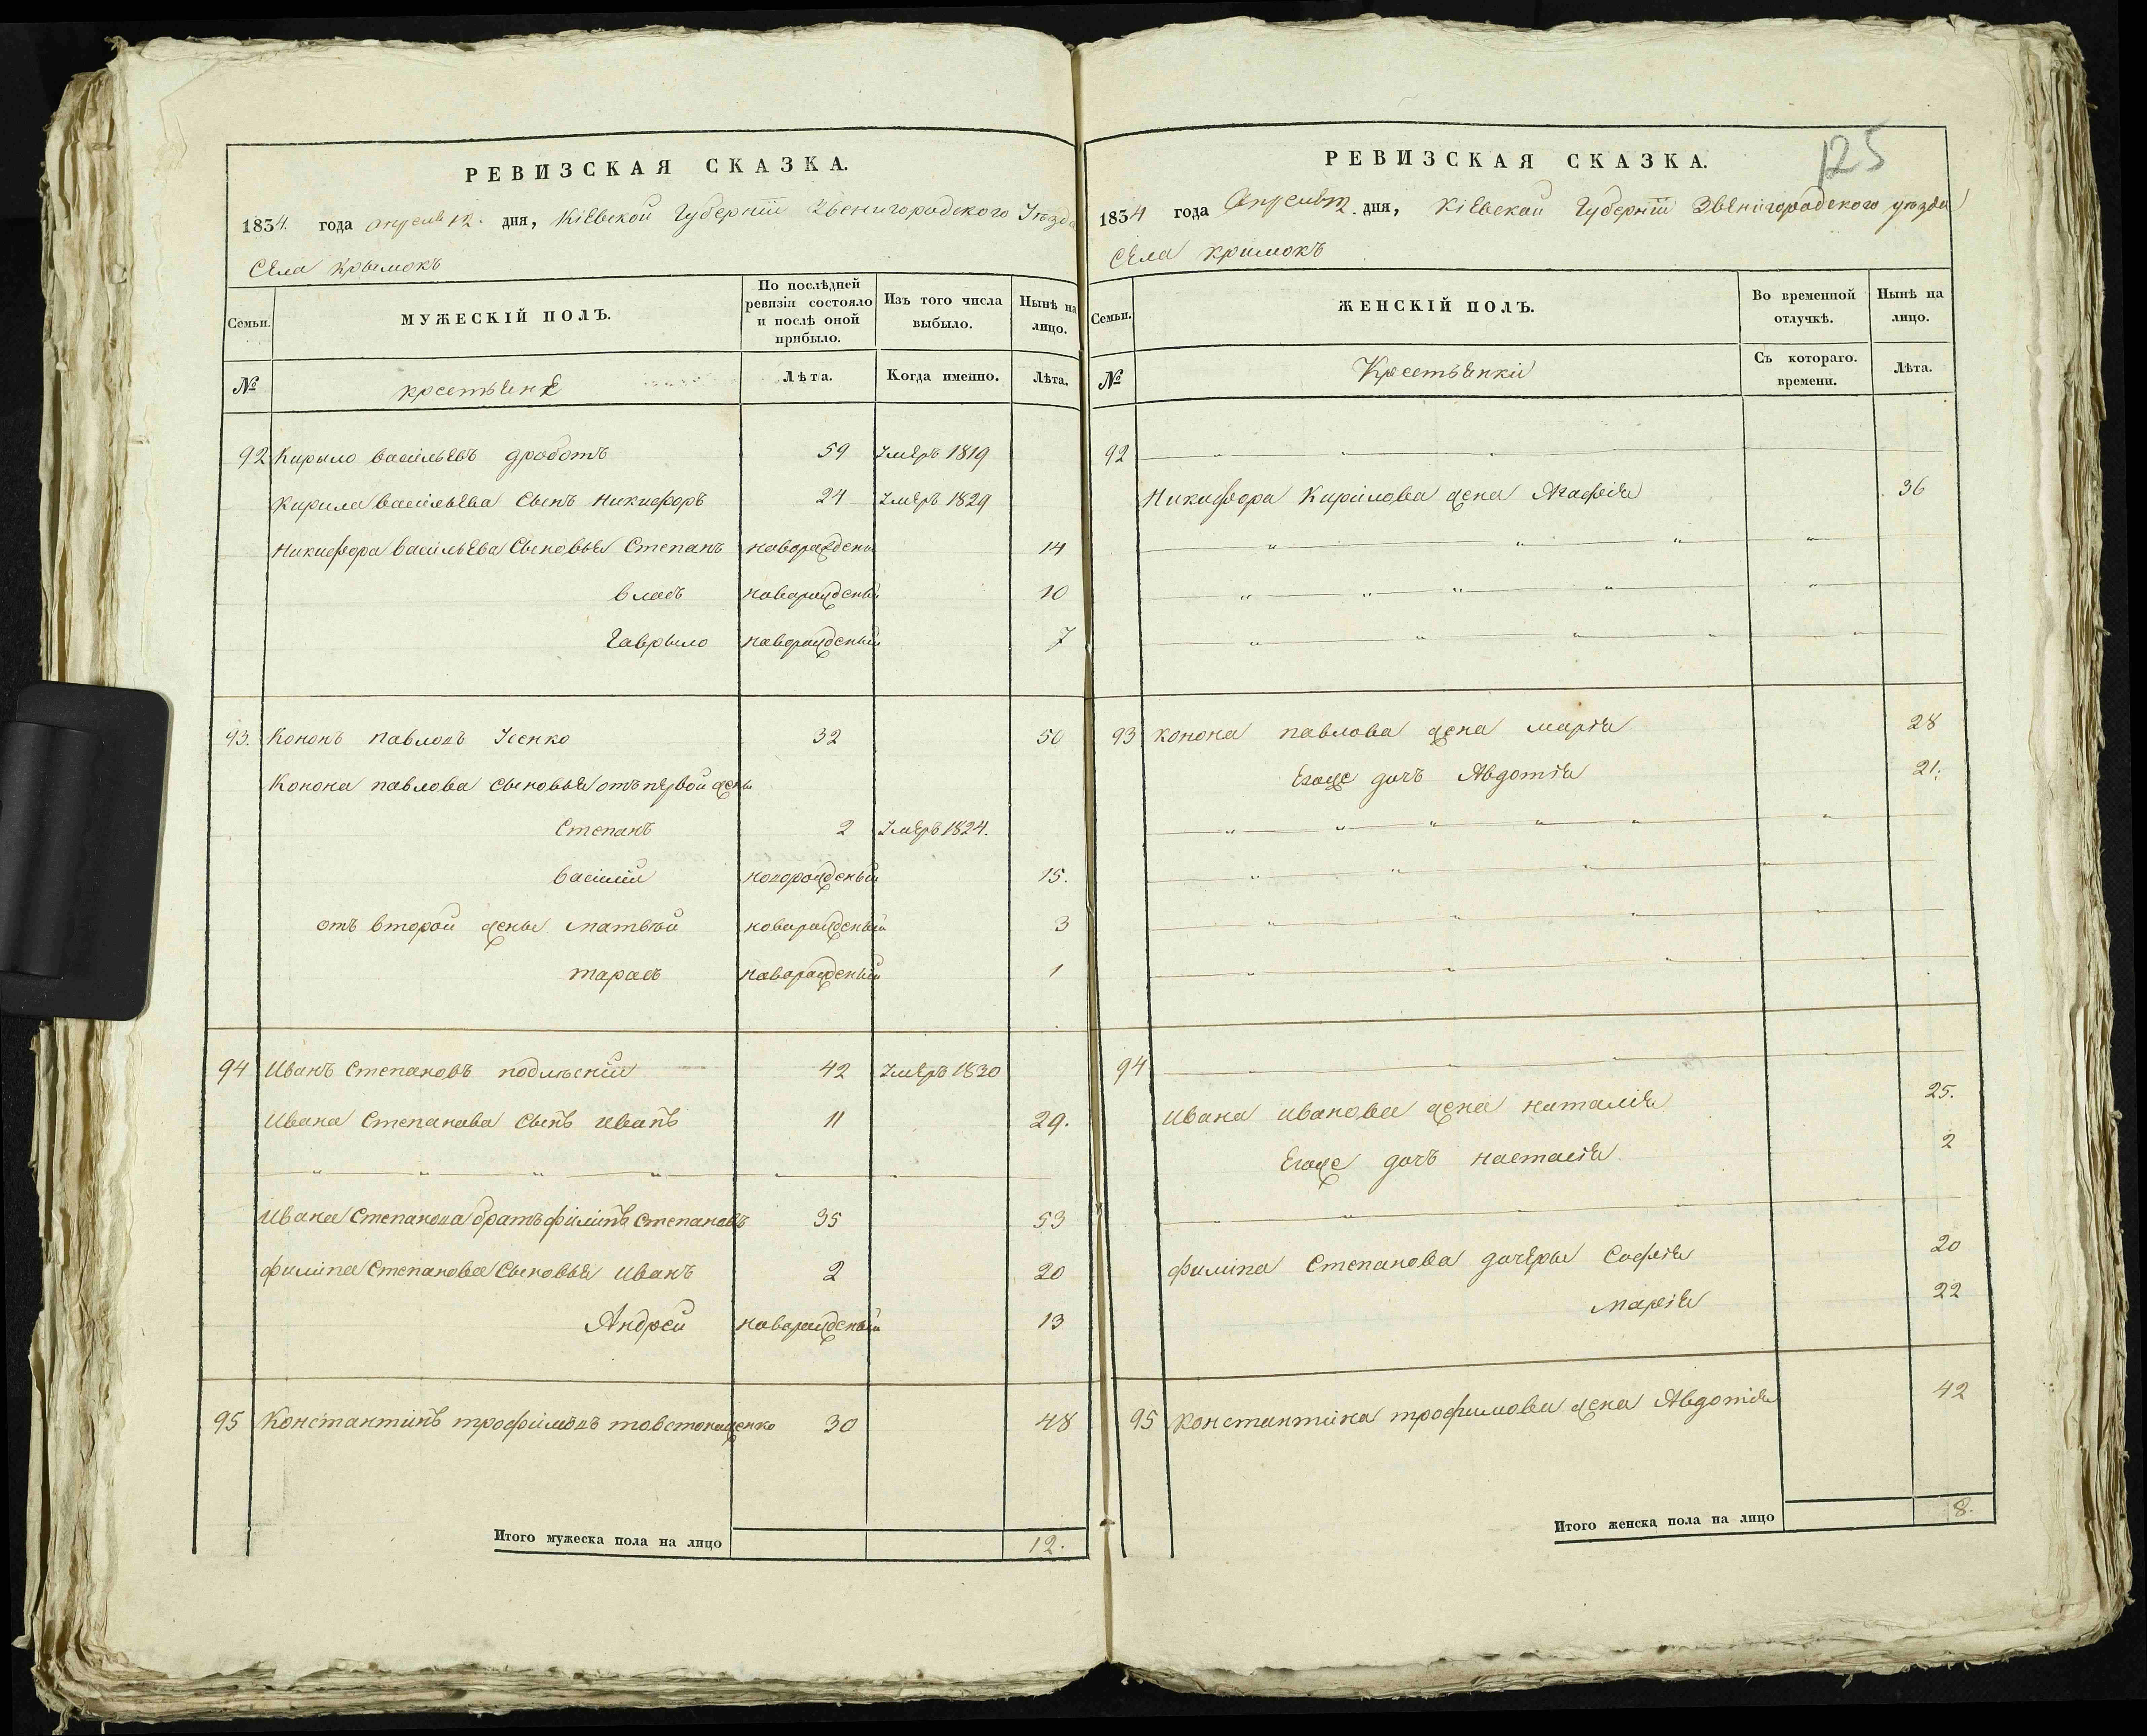 РЕВИЗСКАЯ СКАЗКА.
1834. года апреля 12. дня, Кіевской Губерніи Звенигородского Уѣзда
Села Крымокъ
Семьи.
МУЖЕСКІЙ ПОЛЪ.
По послѣдней ревизіи состояло и послѣ оной прибыло.
Изъ того числа выбыло.
Нынѣ на лицо.
№
крестьяне
Лѣта.
Когда именно.
Лѣта.
92 Кирыло васильевъ дроботъ 59 Умеръ 1819
Кирила васильева сынъ Никифоръ 24 Умеръ 1829
Никифора васильева сыновья Степанъ новорожденъ 14
власъ новорожденый 10
Гаврыло новорожденый 7
93. Кононъ павловъ Усенко 32 50
Конона павлова сыновья отъ первой жены
Степанъ 2 Умеръ 1824.
василій новорожденый 15.
отъ второй жены матвѣй новорожденый 3
тарасъ новорожденый 1
94 Иванъ Степановъ подлѣскій 42 Умеръ 1830
Ивана Степанова сынъ иванъ 11 29.
Ивана Степанова братъ филипъ степановъ 35 53
филипа Степанова сыновья иванъ 2 20
Андрей новорожденый 13
95 Константинъ трофимовъ товстоноженко 30 48
Итого мужеска пола на лицо 12.
125
РЕВИЗСКАЯ СКАЗКА.
1834 года Апреля 12. дня, Кіевской Губерніи Звенигородского уѣзда
Села кримокъ
Семьи.
ЖЕНСКІЙ ПОЛЪ.
Во временной отлучкѣ.
Нынѣ на лицо.
№
Крестьянки
Съ котораго времени.
Лѣта.
92
Никифора Кирилова жена Агафія 36
93 конона павлова жена марія 28
Егоже дочь Авдотія 21.
94
Ивана иванова жена наталія 25.
Егоже дочь настасія 2
филипа Степанова дочеры Софія 20
марія 22
95 Константина трофимова жена Авдотія 42
Итого женска пола на лицо 8.